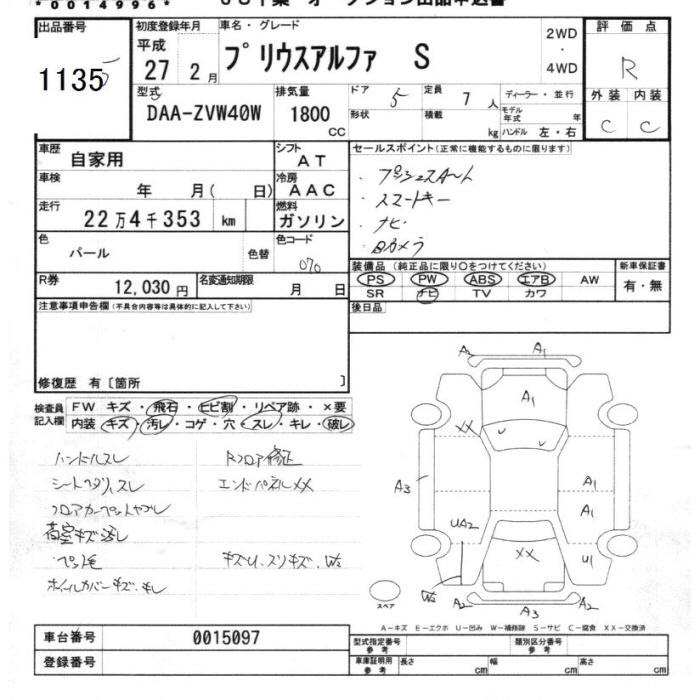 *0014996*
出品番号 1135
初度登録年月 平成 27 2月
車名・グレード プリウスアルファ S
2WD・4WD
評価点 R
型式 DAA-ZVW40W
排気量 1800 CC
ドア 5 定員 7人
形状 積載 kg
ディーラー・並行
モデル年式 年
ハンドル 左・右
外装 C 内装 C
車歴 自家用
シフト AT
車検 年 月( 日)
冷房 AAC
走行 22万4千353 km
燃料 ガソリン
色 パール 色替
色コード 070
R券 12,030円
名変通知期限 月 日
セールスポイント(正常に機能するものに限ります)
・プッシュスタート
・スマートキー
・ナビ
・Bカメラ
装備品(純正品に限り○をつけてください)
PS PW ABS エアB AW
SR ナビ TV カワ
新車保証書 有・無
後日品
注意事項申告欄(不具合内容等は具体的に記入して下さい)
修復歴 有〔箇所 〕
検査員記入欄
FW キズ・飛石・ヒビ割・リペア跡・×要
内装 キズ・汚レ・コゲ・穴・スレ・キレ・破レ
ハンドルスレ
Rフロア修正
シートヘタリ、スレ
エンドパネルXX
フロアカーペットヤブレ
荷室キズ汚レ
ペット毛
キズU、スリキズ、W2
ホイルカバーキズ・キレ
A2 A1
A1
XX
A3 A1
A1
UA2 XX U1
W2 A2 A3 A2
スペア
A-キズ E-エクボ U-凹み W-補修跡 S-サビ C-腐食 XX-交換済
車台番号 0015097
登録番号
型式指定番号 参考
類別区分番号 参考
車庫証明用 参考 長さ cm 幅 cm 高さ cm